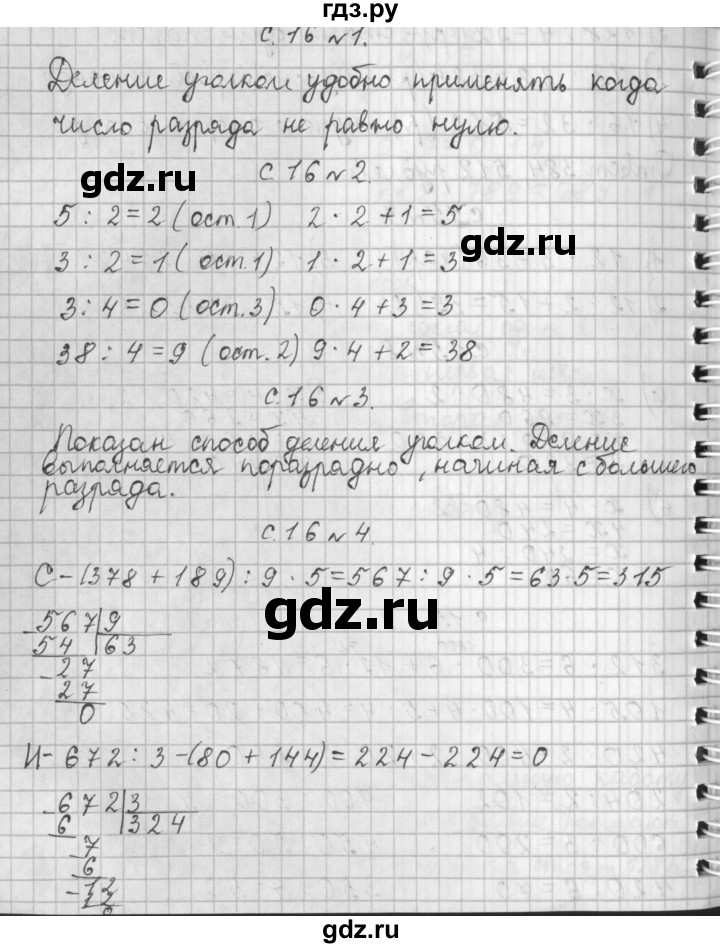 гдз.ру
С. 16 №1.
Деление уголком удобно применять когда
число разряда не равно нулю.
gdz.ru
С. 16 №2.
5 : 2 = 2 (ост. 1) 2 · 2 + 1 = 5
gdz.ru
3 : 2 = 1 (ост. 1) 1 · 2 + 1 = 3
3 : 4 = 0 (ост. 3) 0 · 4 + 3 = 3
38 : 4 = 9 (ост. 2) 9 · 4 + 2 = 38
С. 16 №3.
Показан способ деления уголком. Деление
выполняется поразрядно, начиная с большего
разряда.
С. 16 №4.
С - (378 + 189) : 9 · 5 = 567 : 9 · 5 = 63 · 5 = 315
gdz.ru
- 567 | 9
54 | 63
- 27
27
0
И - 672 : 3 - (80 + 144) = 224 - 224 = 0
- 672 | 3
6 | 324
- 7
6
- 12
12
0
gdz.ru
gdz.ru